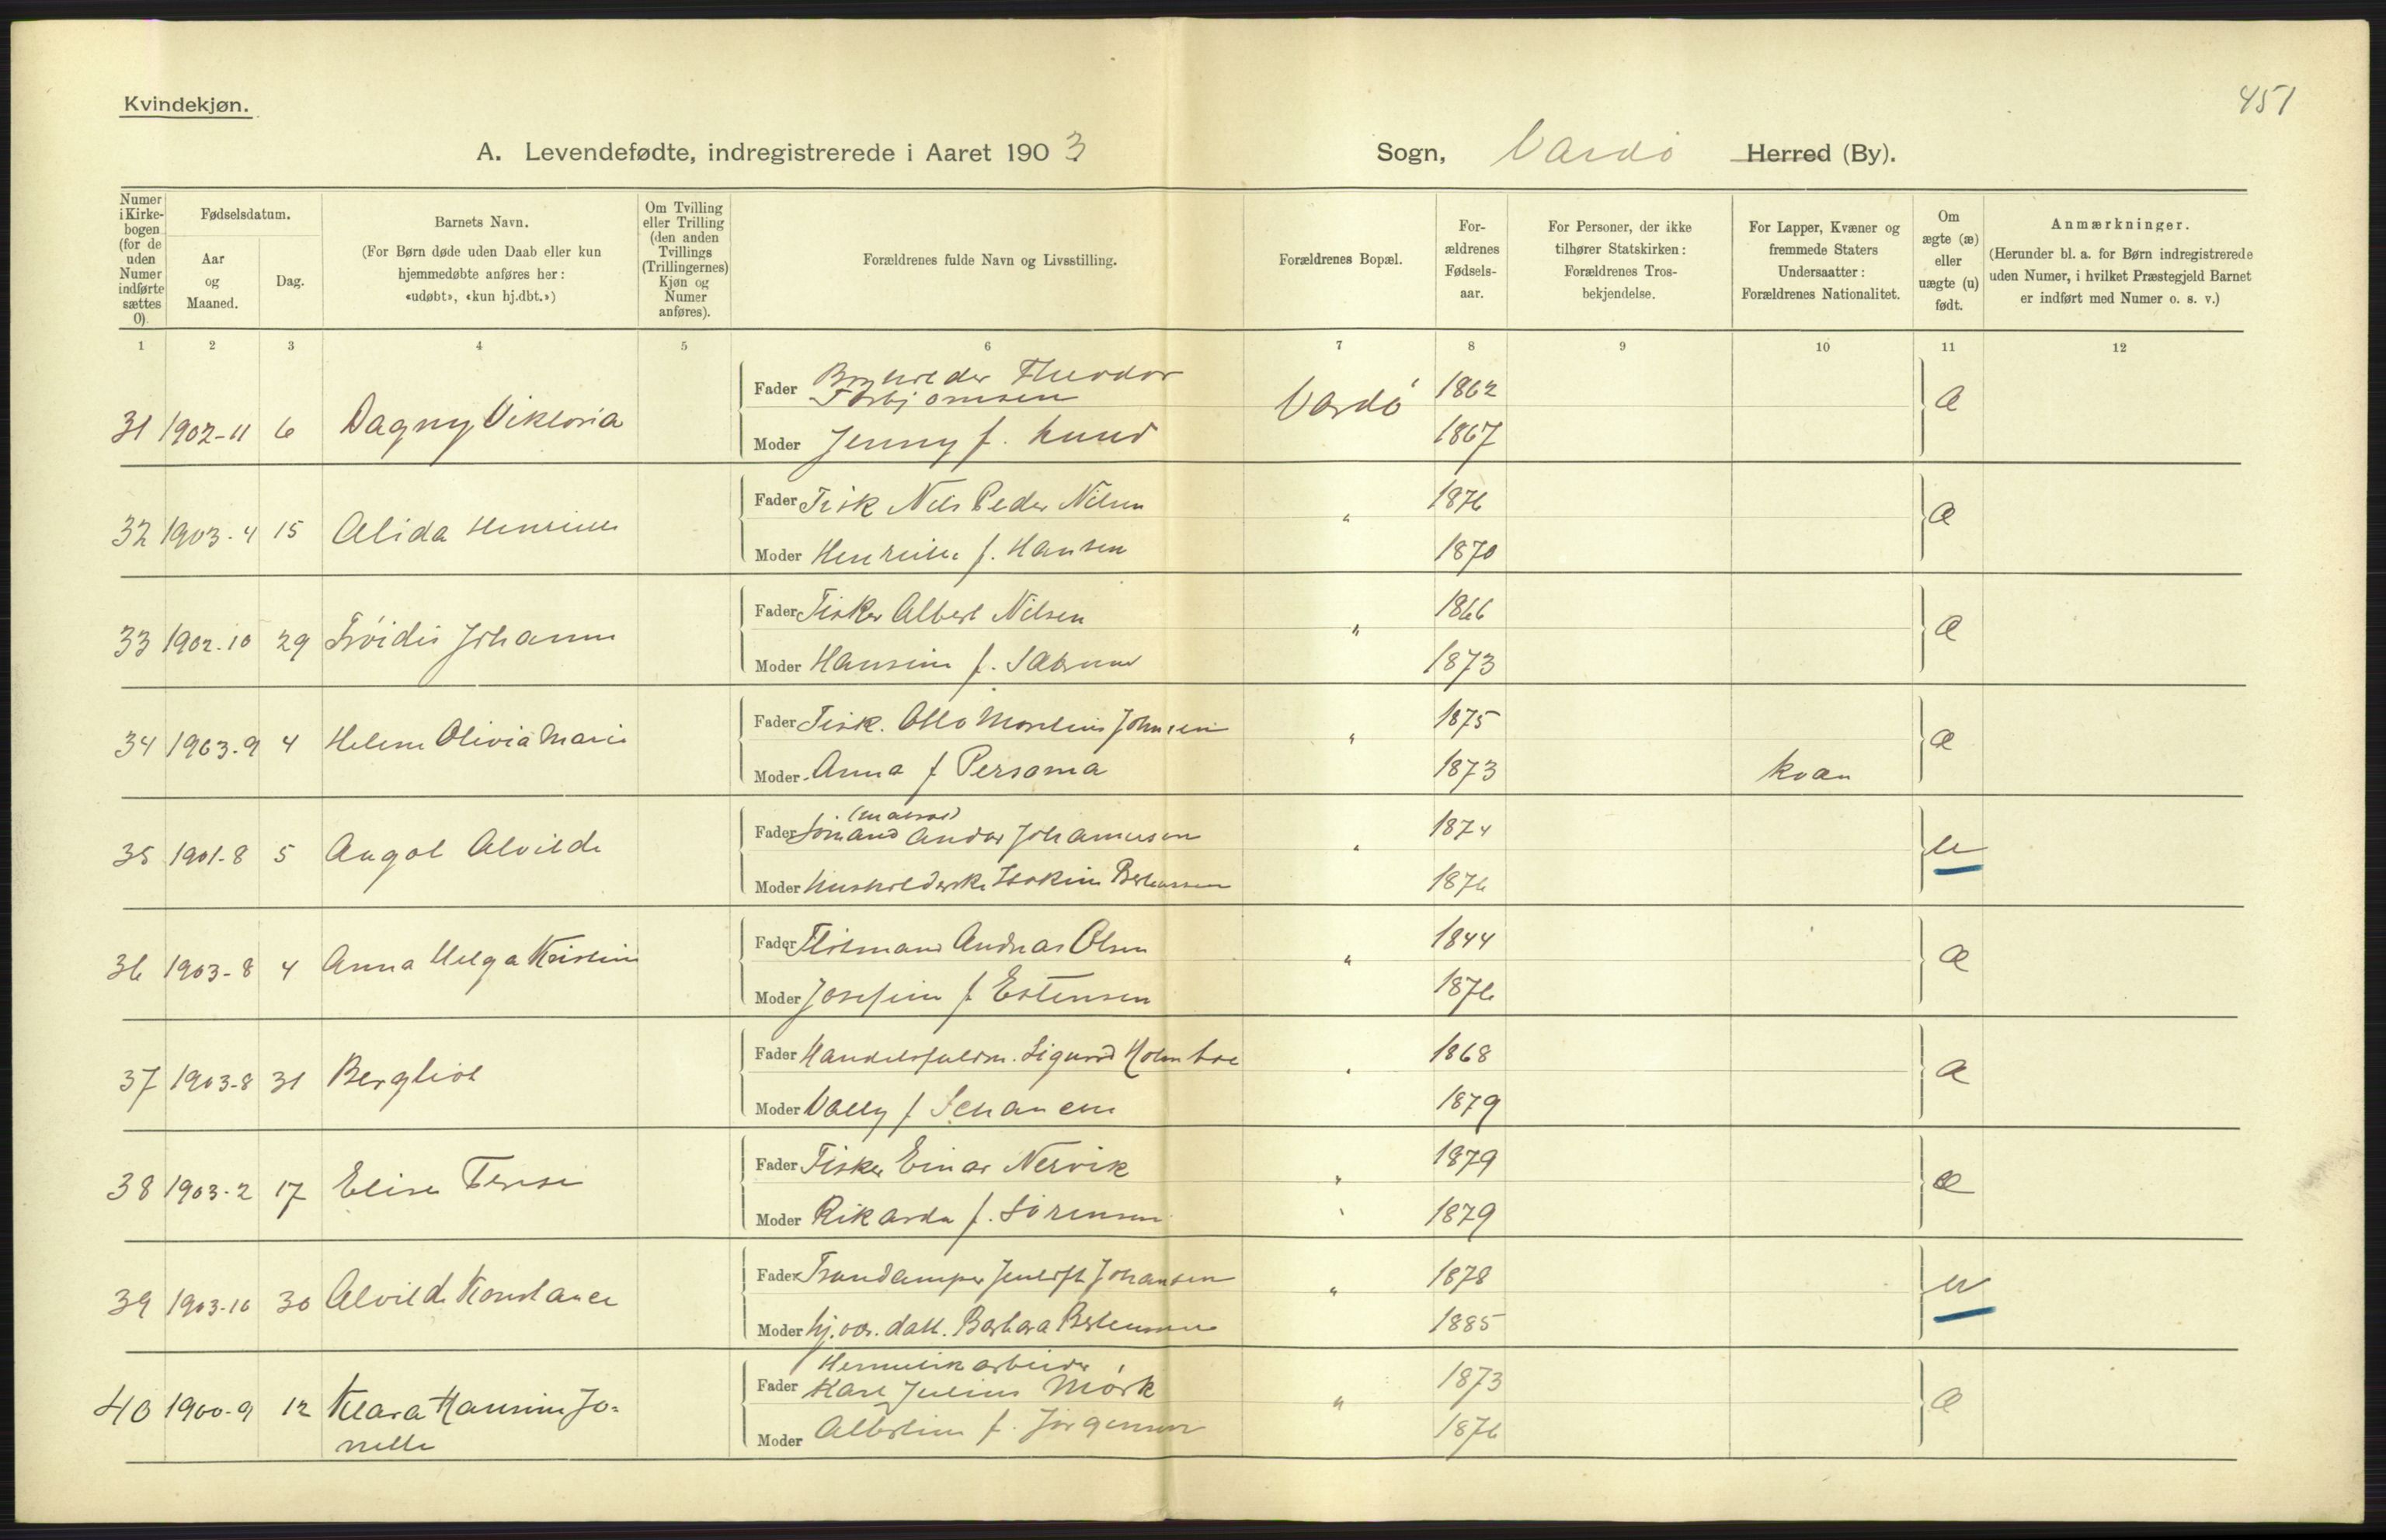 Kvindekjøn.
451
A. Levendefødte, indregistrerede i Aaret 1903 Sogn, Vardø Herred (By).
Numer i Kirkebogen (for de uden Numer indførte sættes 0).
Fødselsdatum.
Aar og Maaned.
Dag.
Barnets Navn.
(For Børn døde uden Daab eller kun hjemmedøbte anføres her: «udøbt», «kun hj.dbt.»)
Om Tvilling eller Trilling (den anden Tvillings (Trillingernes) Kjøn og Numer anføres).
Forældrenes fulde Navn og Livsstilling.
Forældrenes Bopæl.
Forældrenes Fødselsaar.
For Personer, der ikke tilhører Statskirken: Forældrenes Trosbekjendelse.
For Lapper, Kvæner og fremmede Staters Undersaatter: Forældrenes Nationalitet.
Om ægte (æ) eller uægte (u) født.
Anmærkninger.
(Herunder bl. a. for Børn indregistrerede uden Numer, i hvilket Præstegjeld Barnet er indført med Numer o. s. v.)
1 2 3 4 5 6 7 8 9 10 11 12
31 1902-11 6 Dagny Viktoria Fader Theodor Torbjørnsen Vardø 1862 æ
Moder Jenny f. Lund 1867
32 1903-4 15 Alida Fader Fisk Nils Peder Nilsen " 1876 æ
Moder f. Hansen 1870
33 1902-10 29 Frøidis Johanne Fader Fisker Albert Nilsen " 1866 æ
Moder Hansine f. 1873
34 1903-9 4 Helene Olivia Marie Fader Fisk. Otto Johnsen " 1875 æ
Moder Anna f Persama 1873 kvæn
35 1901-8 5 Alvilde Fader Sømand Johannesen " 1874 u
Moder Husholderske 1876
36 1903-8 4 Anna Helga Kristine Fader Andreas Olsen " 1844 æ
Moder Josefine f Estensen 1876
37 1903-8 31 Bergliot Fader Handelsfuldm. Sigurd Holmboe " 1868 æ
Moder Vally f Schancke 1879
38 1903-2 17 Elise Terese Fader Fisker Einar Nervik " 1879 æ
Moder Rikarda f. Sørensen " 1879
39 1903-10 30 Alvilde Konstance Fader Johansen " 1878 u
Moder hj.vær. datt. Barbara Berntsen 1885
40 1900-9 12 Klara Hansine Jo-
nelle
Fader Hermetikarbeider
Karl Julius Mørk " 1873 æ
Moder Albertine f. Jørgensen 1876